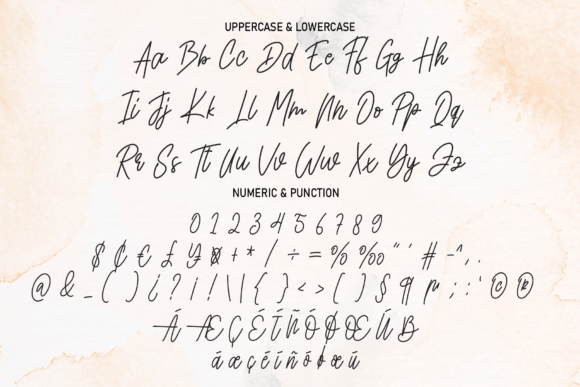 UPPERCASE & LOWERCASE
Aa Bb Cc Dd Ee Ff Gg Hh
Ii Jj Kk Ll Mm Nn Oo Pp Qq
Rr Ss Tt Uu Vv Ww Xx Yy Zz
NUMERIC & PUNCTION
0 1 2 3 4 5 6 7 8 9
$ ₵ € £ ¥ ¤ + * / ÷ = % ‰ “ ‘ # - ^ , .
@ & _ ( ) ¿ ? ¡ / ! \ | { } < > [ ] § ¶ µ ; : ' © ®
Á Æ Ç É Í Ñ Ó Ø Œ Ú ß
á æ ç é í ñ ó ø œ ú